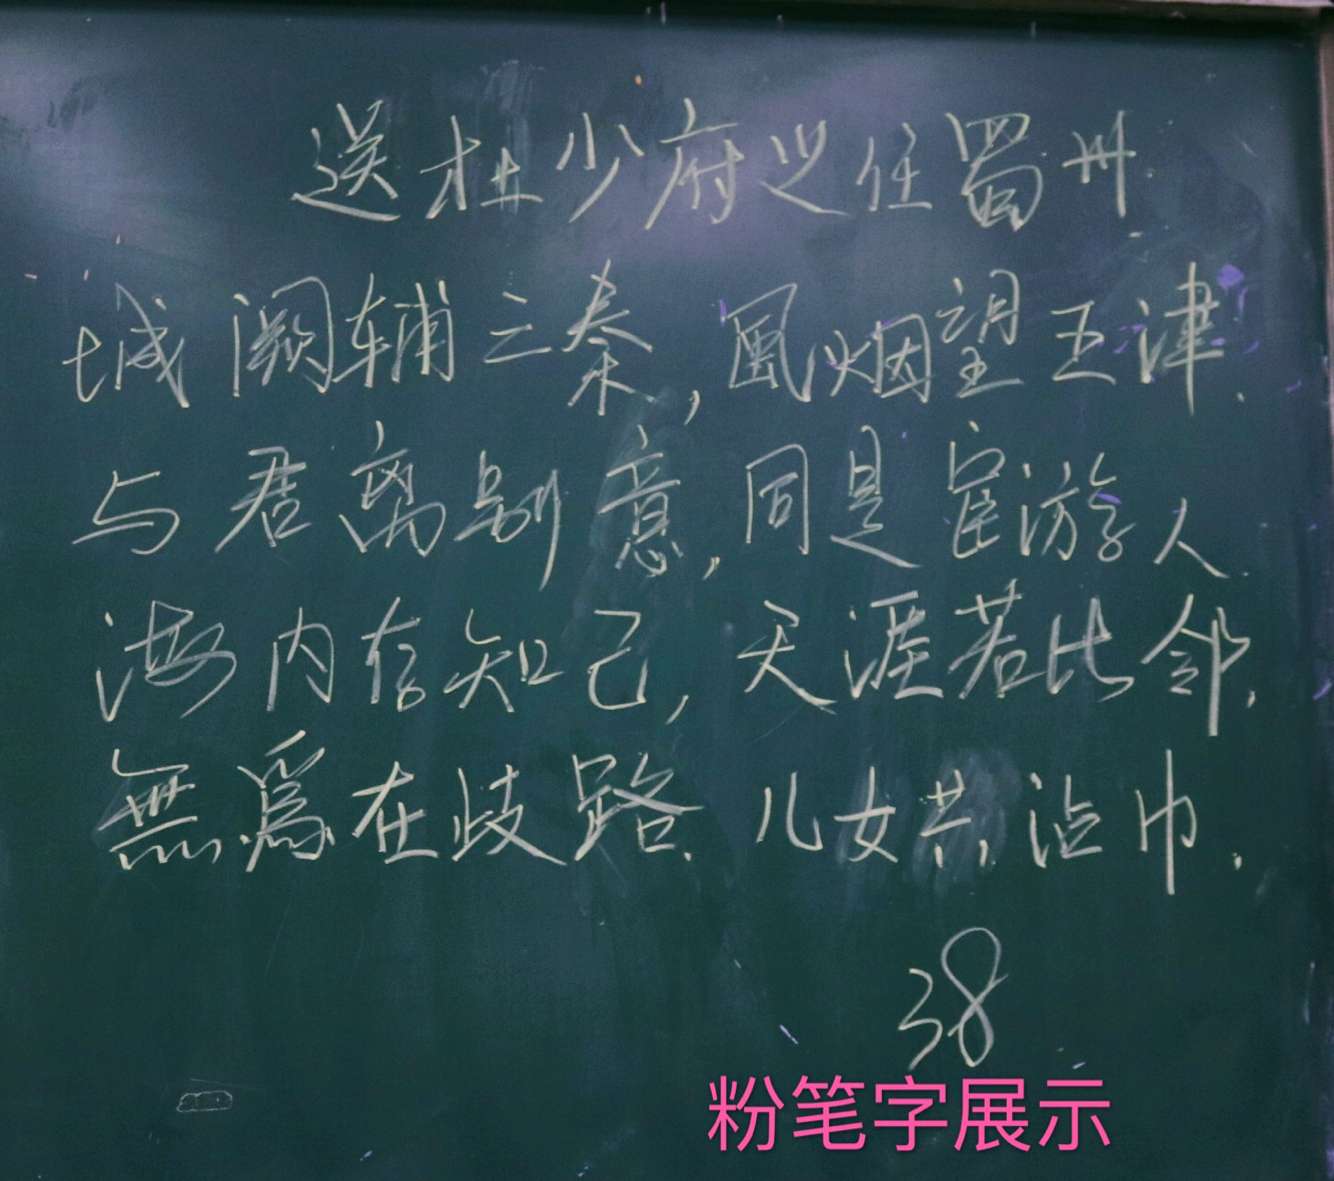 送杜少府之任蜀州
城阙辅三秦,风烟望五津.
与君离别意,同是宦游人.
海内存知己,天涯若比邻.
無為在歧路.儿女共沾巾.
38
粉笔字展示